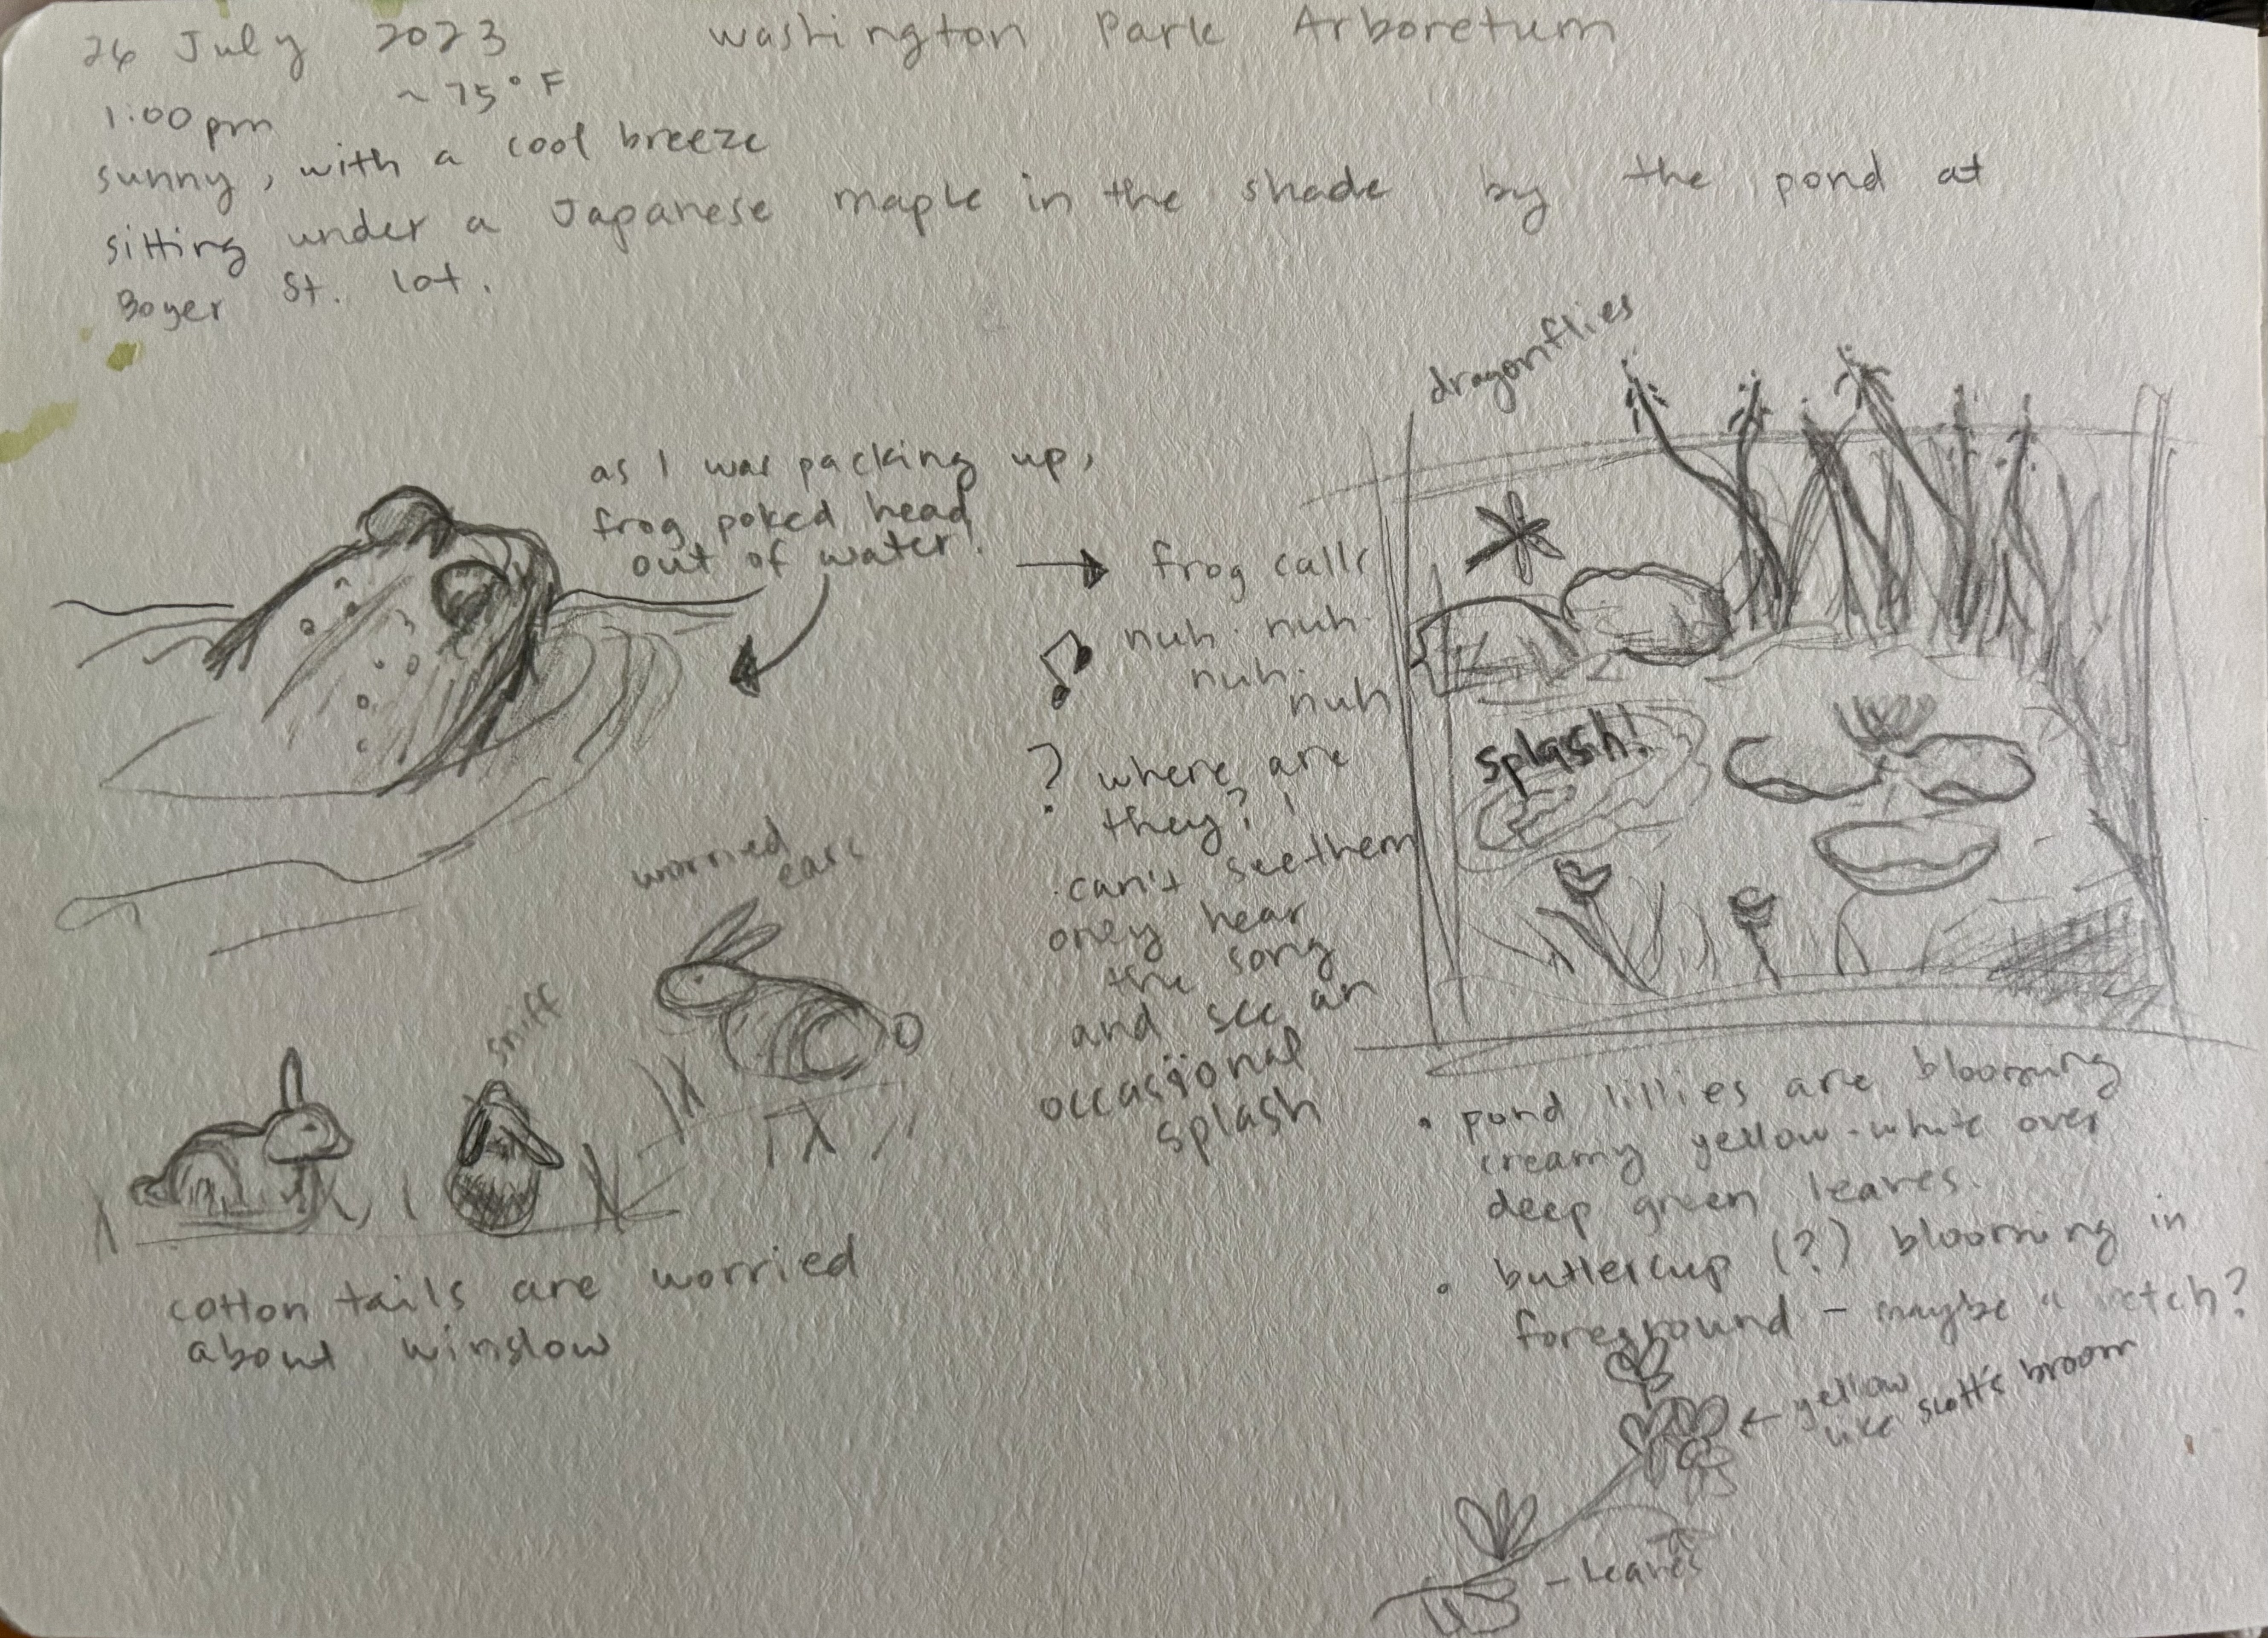 26 July 2023
Washington Park Arboretum
1:00pm ~ 75° F
sunny, with a cool breeze
sitting under a Japanese maple in the shade by the pond at
Boyer St. lot.
as I was packing up,
frog poked head
out of water!
→ frog calls
nuh. nuh.
nuh.
nuh
? where are
they?
can't see them
only hear
the song
and see an
occasional
splash
dragonflies
splash!
worried
ears
sniff
cotton tails are worried
about winslow
• pond lillies are blooming
creamy yellow-white over
deep green leaves.
• buttercup (?) blooming in
foreground - maybe a vetch?
← yellow
like scott's broom
- leaves